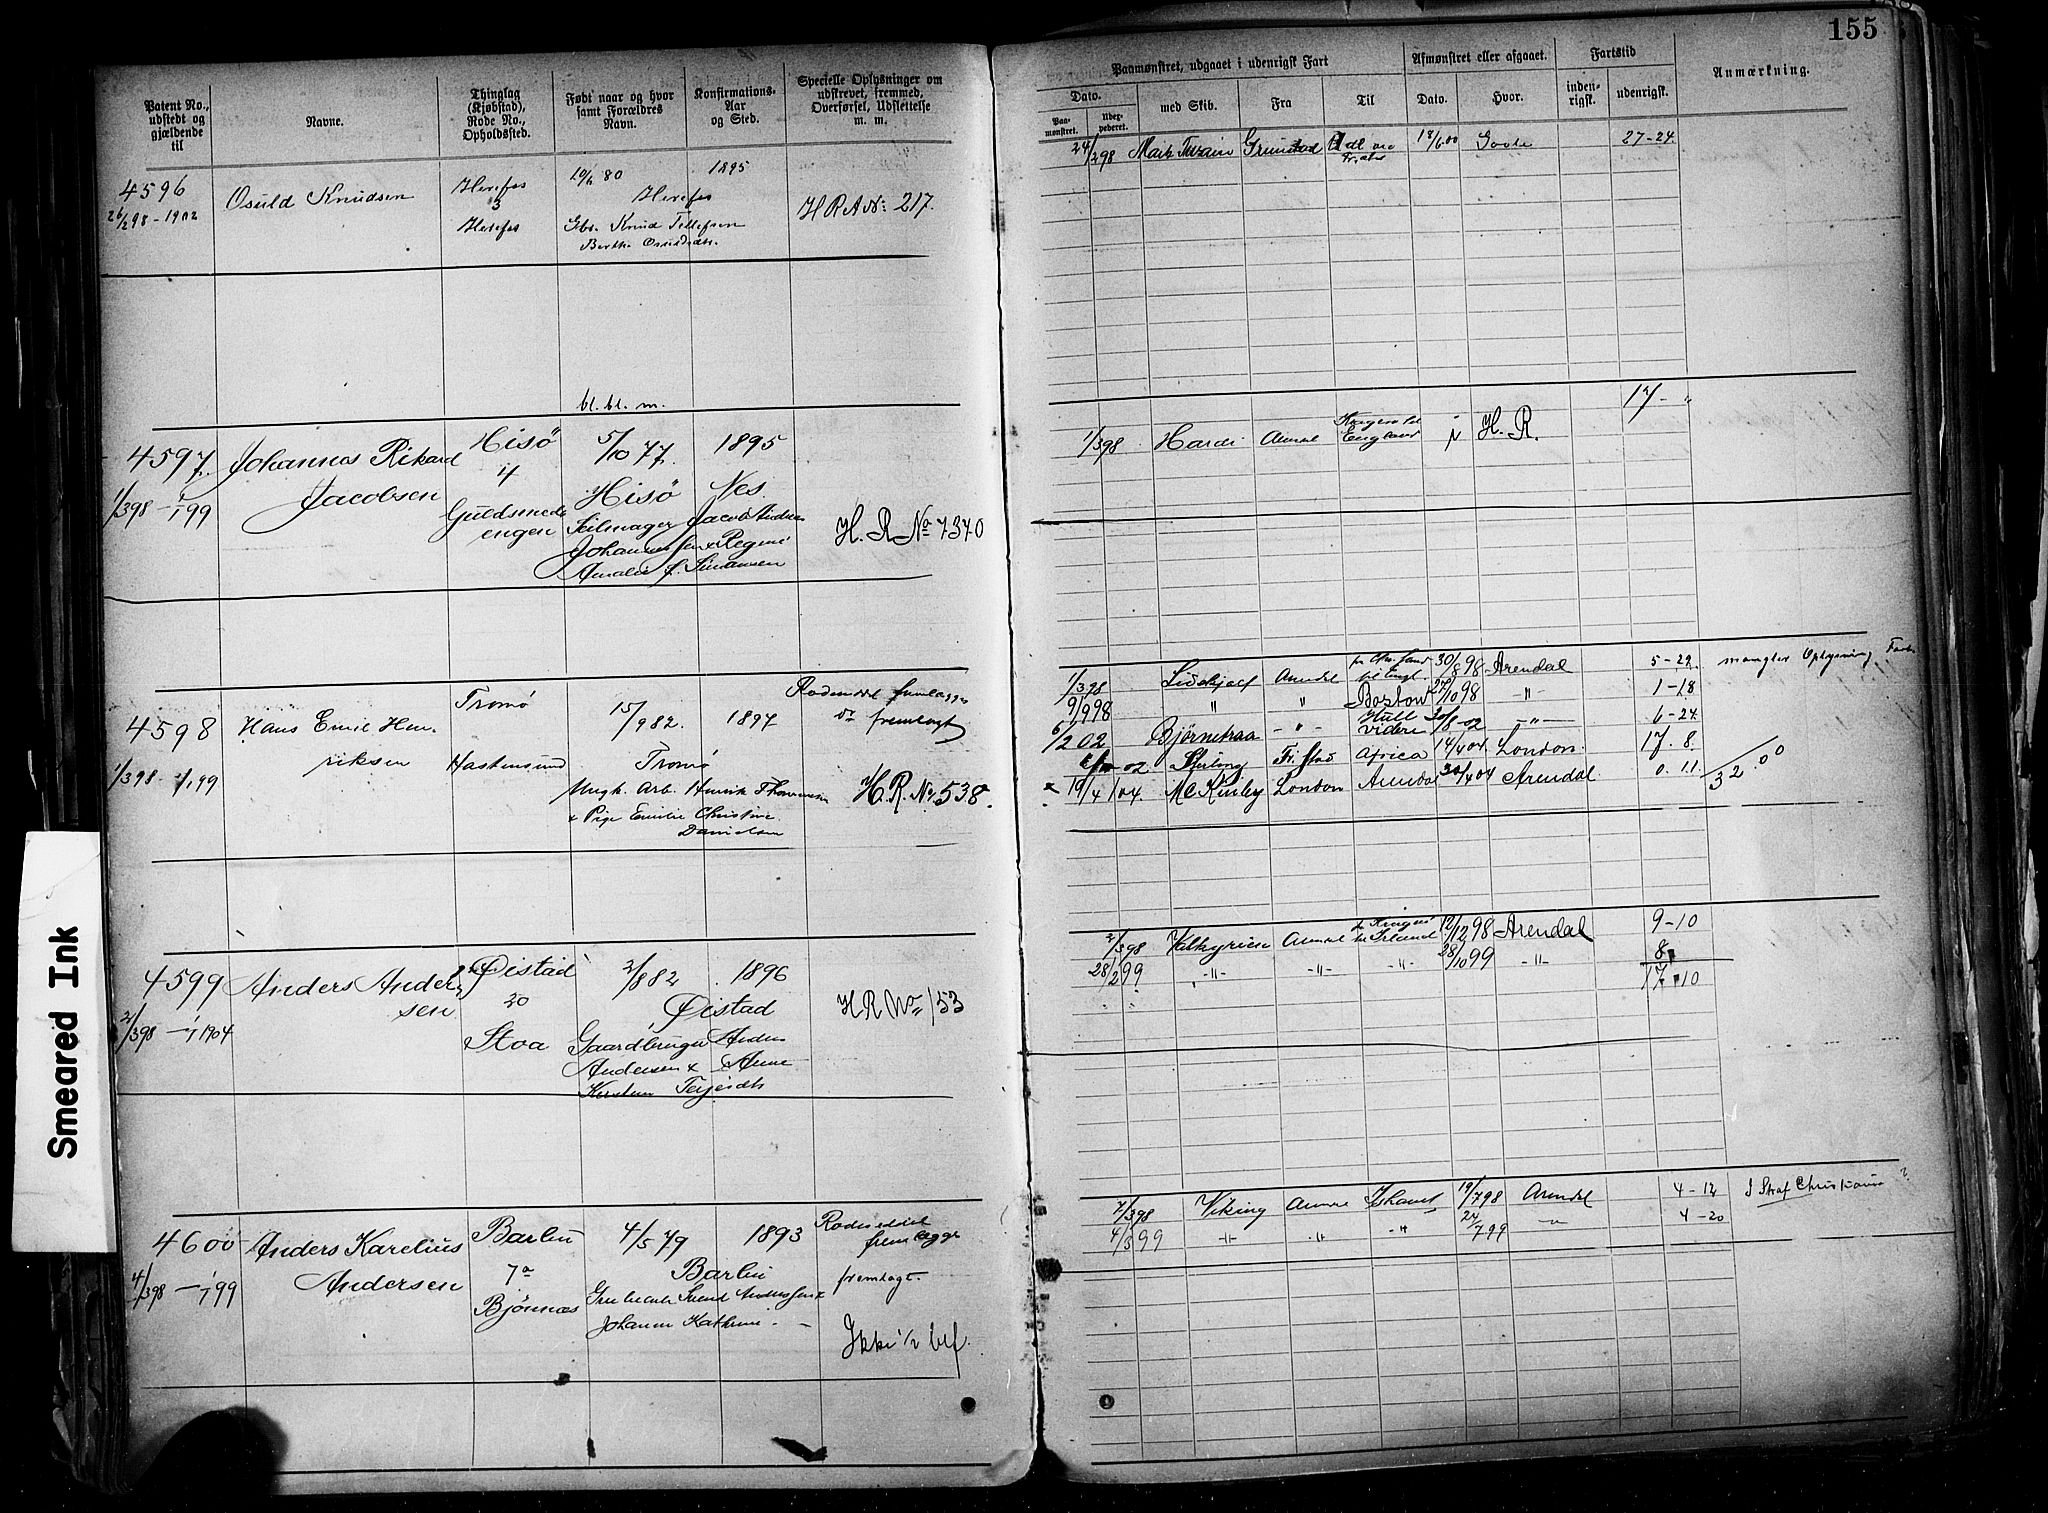 155
Patent No., udstedt og gjældende til
Navne.
Thinglag (Kjøbstad), Rode No., Opholdssted.
Født naar og hvor samt Forældres Navn.
Konfirmations-Aar og Sted.
Specielle Oplysninger om udskrevet, fremmed, Overførsel, Udslettelse m. m.
Paamønstret, udgaaet i udenrigsk Fart
Dato.
Paa-mønstret.
med Skib.
Fra
Til
Afmønstret eller afgaaet.
Dato.
Hvor.
Fartstid
inden-rigsk.
udenrigsk.
Anmærkning.
4596
26/2 98 - 1902
Osuld Knudsen
Herefos
3
Herefos
10/ 80
Herefos
Gbr. Knud Tellefsen
1895
H R A No: 217.
24/2 98 Mark Twain Grimstad 18/6 00 Goole 27-24
bl. bl. m.
4597.
1/3 98 - 1/1 99
Johannes Rikard
Jacobsen
Hisö
4
Guldsmeds
engen
5/10 77.
Hisö
Seilmager Jacob
Johannessen & Regine
Amalie f. Simonsen
1895
Nes.
H. R. No 7370
1/3 98 England H. R. 17 - "
4598
1/3 98 - 1/1 99
Hans Emil Hen
riksen
Tromö
Hastensund
15/9 82.
Tromö
Ungk. Arb. Henrik Thommesen
& Pige Emilie Christine
Danielsen
1897
Rodeseddel fremlægges
fremlagt
H. R. No. 538.
1/3 98 Arendal 30/8 98 Arendal 5-29 mangler Oplysning
9/9 98 " " Boston 98 " 1-18
6/2 02 Bjørnekraa - " - Hull videre 20/8-02 - " - 6-24
02 Fr.stad Africa 14/4 04 London. 17. 8.
19/4 04. McKinley London Arendal 30/4 04 Arendal 0. 11. 32 0
4599
2/3 98 - 1/1 1904
Anders Ander
sen
Øistad
20
Stoa
2/8 82
Øistad
Gaardbruger Anders
Andersen & Anne
Kirstine Terjesdt
1896
H R No " 153
2/3 98 Valkyrien Arendal Island 12/12 98 Arendal 9-10
28/2 99 - " - - " - - " - 28/10 99 - " - 8
17 10
4600
4/3 98 - 1/1 99
Anders Karelius
Andersen
Barbu
7a
Björnnæs
4/5 79
Barbu
Svend Anderssen &
Johanne Kathrine
1893
Rodeseddel
fremlægges
fremlagt.
Ikke 1/2 bef.
4/3 98 Viking Arendal Ishavet 19/7 98 Arendal 4-12 I Straf Christiania ?
4/3 99 - " - - " - - " - 24/7 99 - " - 4-20
Smeared Ink